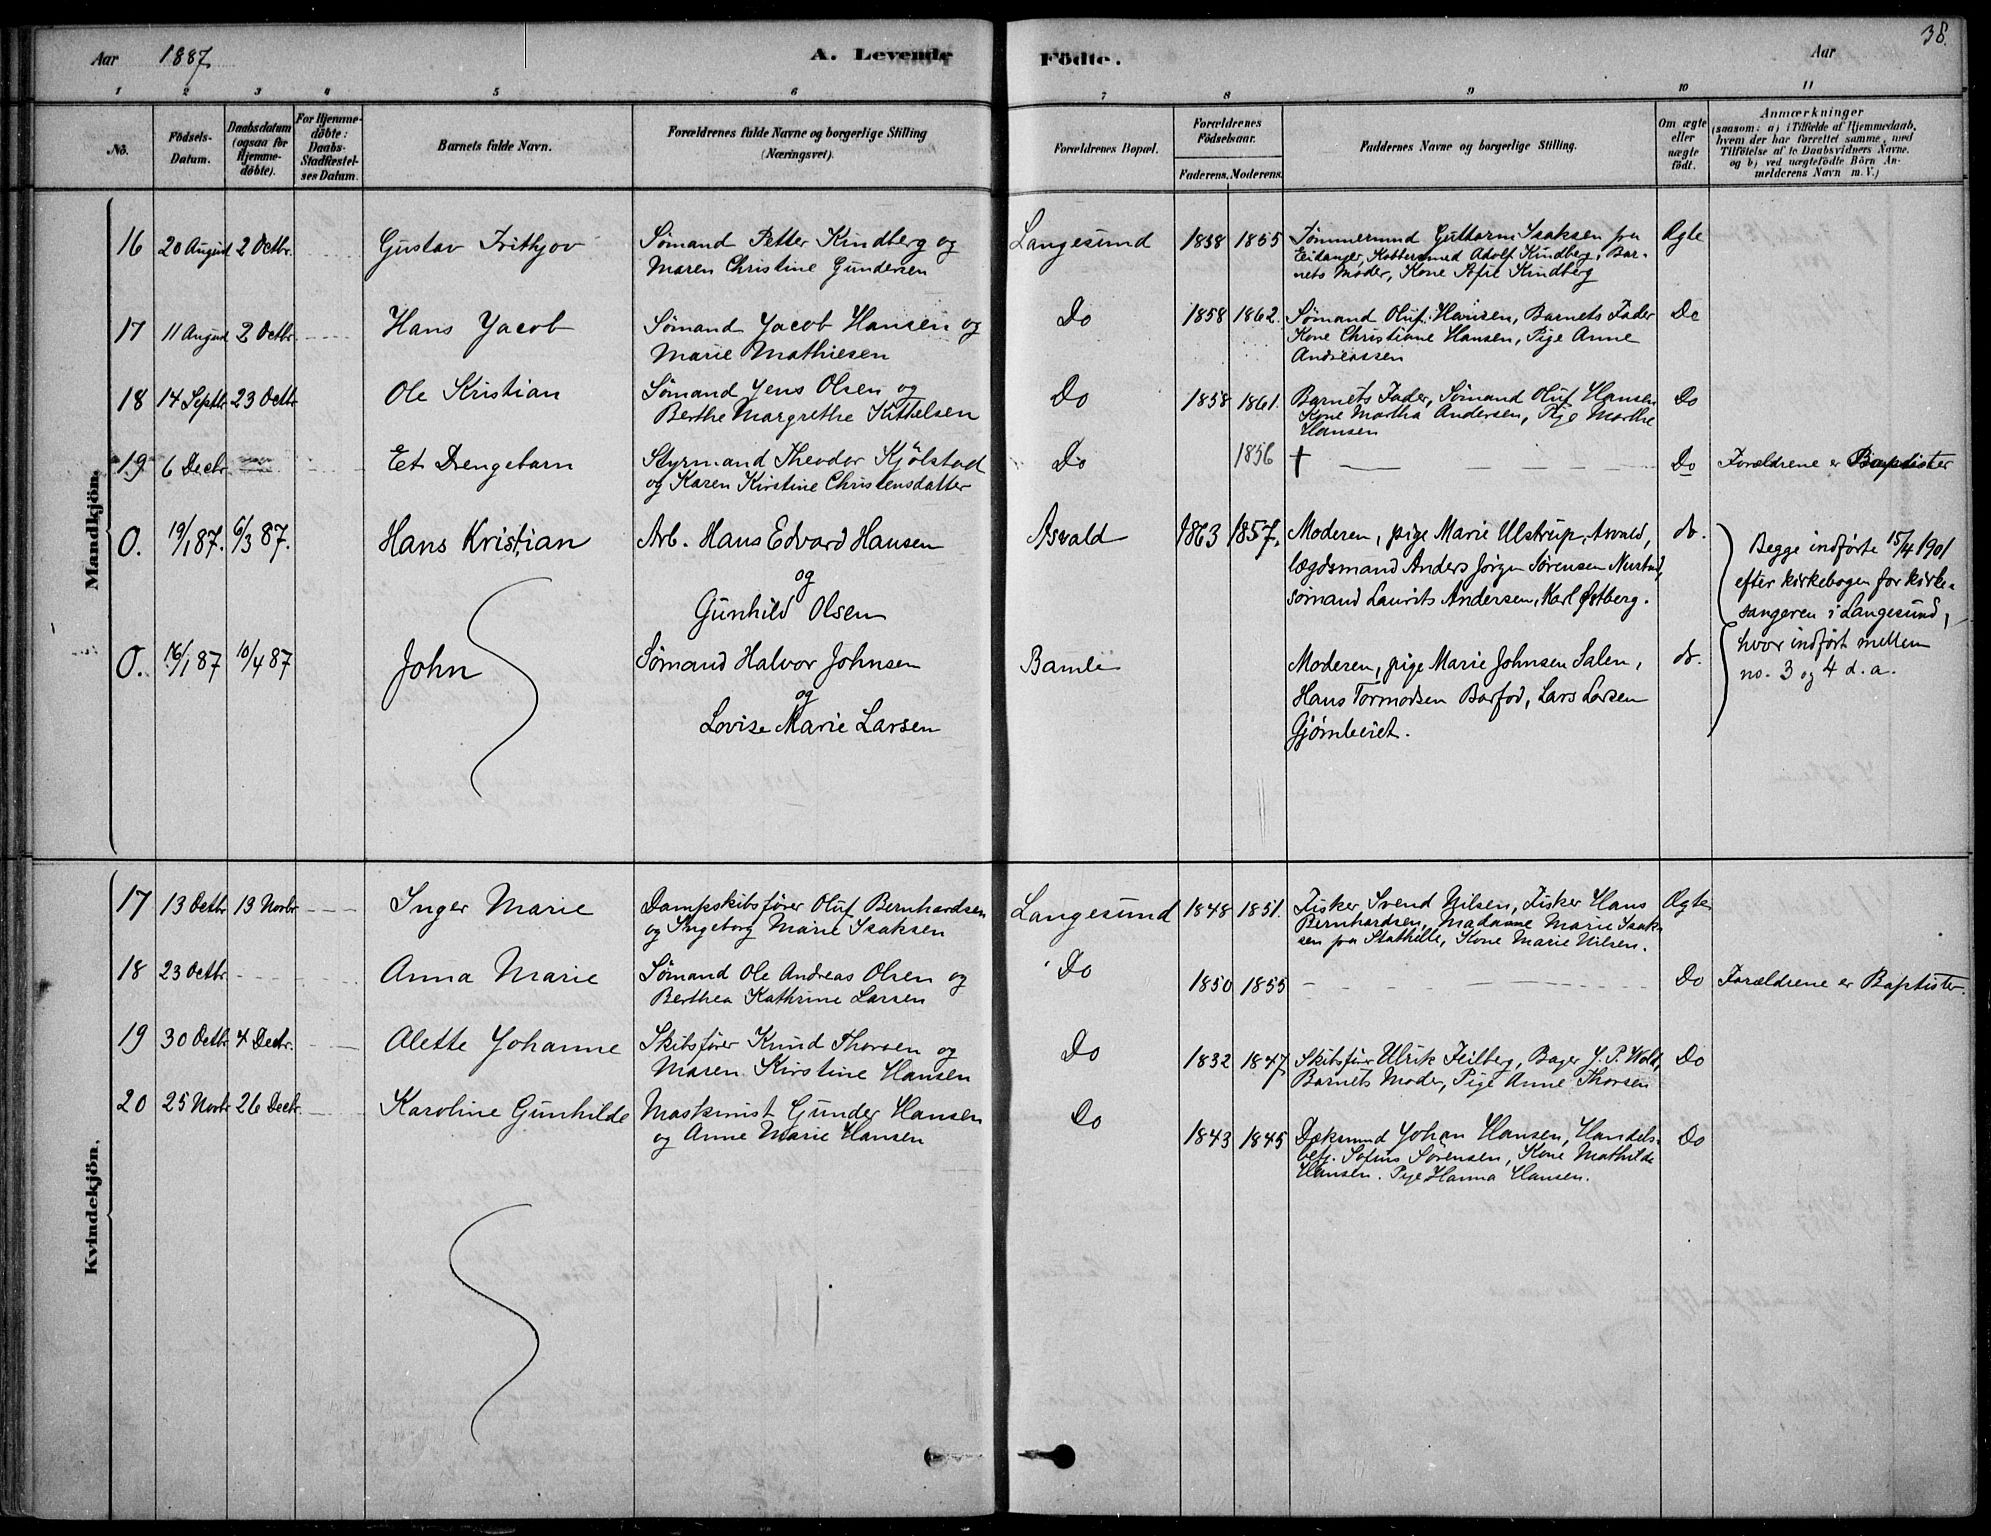 Aar 1887
A. Levende Födte.
Aar
38.
1 2 3 4 5 6 7 8 9 10 11
No.
Födsels-
Datum.
Daabsdatum
(ogsaa for
Hjemme-
døbte).
For Hjemme-
døbte:
Daabs-
Stadfæstel-
ses Datum.
Barnets fulde Navn.
Forældrenes fulde Navne og borgerlige Stilling
(Næringsvei).
Forældrenes Bopæl.
Forældrenes
Födselsaar.
Faderens. Moderens.
Faddernes Navne og borgerlige Stilling.
Om ægte
eller
uægte
født.
Anmærkninger
(saasom: a) i Tilfælde af Hjemmedaab,
hvem der har forrettet samme, med
Tilföielse af to Daabsvidners Navne.
og b) ved uægtefödte Börn An-
melderens Navn m. V.)
Mandkjön.
16 20 August 2 Octbr. Gustav Frithjov Sømand Petter Kindberg og
Maren Christine Gundersen
Langesund 1838 1855 Tømmermand Guttorm Isaksen fra Ægte
Eidanger, Kobbersmed Adolf Kindberg, Bar-
nets Moder, Kone Sofie Kindberg
17 11 August 2 Octbr. Hans Jacob Sømand Jacob Hansen og
Marie Mathiesen
Do 1858 1862. Sømand Oluf Hansen, Barnets Fader Do
Kone Christiane Hansen, Pige Anne
Andreassen
18 14 Septbr. 23 Octbr Ole Kristian Sømand Jens Olsen og
Berthe Margrethe Kittelsen
Do 1858 1861. Barnets Fader, Sømand Oluf Hansen Do
Kone Martha Andersen, Pige Marthe
Hansen
19 6 Decbr. Et Drengebarn Styrmand Theodor Kjölstad
og Karen Kirstine Christensdatter
Do 1856 + Do Forældrene er Baptister
0. 19/1 87. 6/3 87. Hans Kristian Arb. Hans Edvard Hansen
og
Gunhild Olsen
Asvald 1863 1857. Moderen, pige Marie Ulstrup, Asvald, do.
lægdsmand Anders Jørgen Sørensen Nustad,
sømand Laurits Andersen, Karl Østberg.
Begge indførte 15/4 1901
efter kirkebogen for kirke-
sangeren i Langesund,
hvor indført mellem
no. 3 og 4 d. a.
0. 16/1 87 10/4 87 John Sømand Halvor Johnsen
og
Lovise Marie Larsen
Bamle Moderen, pige Marie Johnsen Salen, do.
Hans Tormodsen Barfod, Lars Larsen
Gjømleiet.
Kvindekjön.
17 13 Octbr. 13 Novbr Inger Marie Dampskibsfører Oluf Bernhardsen
og Ingeborg Marie Isaksen
Langesund 1848 1851. Fisker Svend Nilsen, Fisker Hans Ægte
Bernhardsen, Madamme Marie Isak-
sen fra Stathelle, Kone Marie Nilsen.
18 23 Octbr. Anna Marie Sømand Ole Andreas Olsen og
Berthea Kathrine Larsen
Do 1850 1855 Do Forældrene er Baptister.
19 30 Octbr. 4 Decbr. Alette Johanne Skibsfører Knud Thorsen og
Maren Kirstine Hansen
Do 1832 1847 Skibsfører Ulrik Feilberg, Bager J. P. Wold, Do
Barnets Moder, Pige Anne Thorsen
20 25 Novbr 26 Decbr. Karoline Gunhilde Maskinist Gunder Hansen
og Anne Marie Hansen
Do 1843 1845 Dæksmand Johan Hansen, Handels- Do
betj. Sofus Sørensen, Kone Mathilde
Hansen. Pige Hanna Hansen.